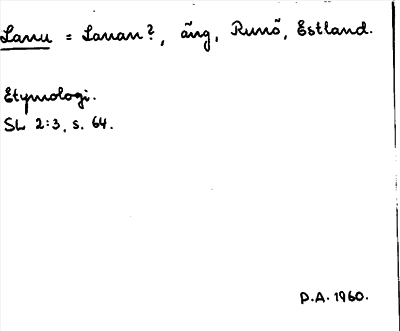 Lanu = Lanan?, äng, Runö, Estland.
Etymologi.
SL 2:3, s. 64.
P.A. 1960.